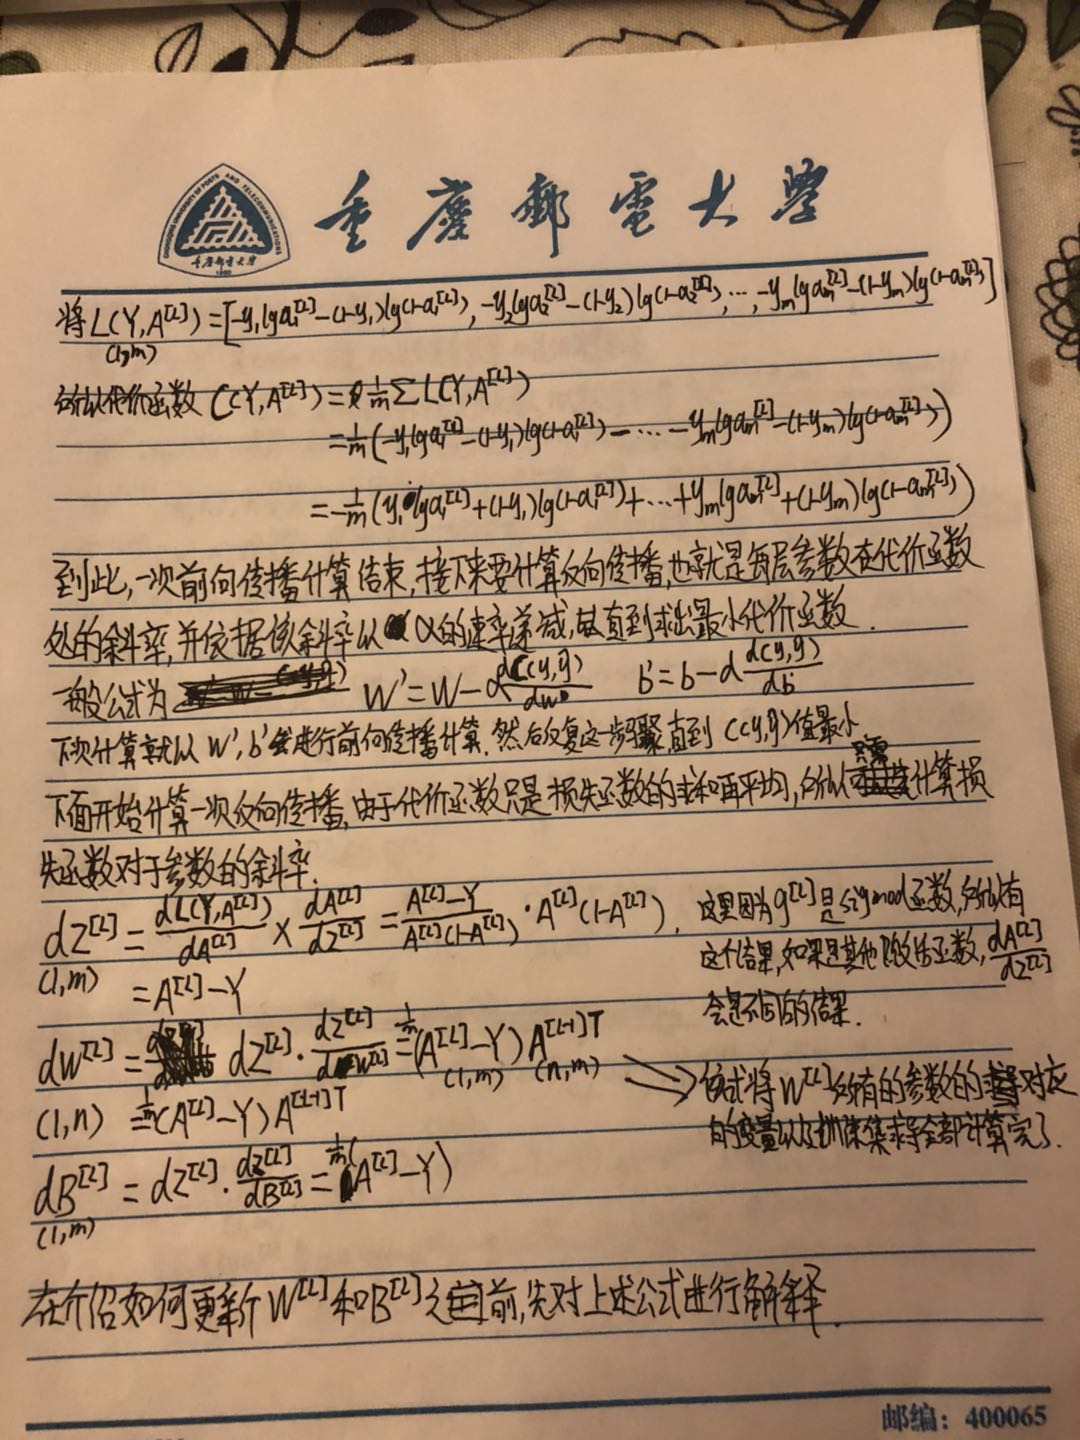 CHONGQING UNIVERSITY OF POSTS AND TELECOMMUNICATIONS
重庆邮电大学
1950
重慶郵電大學
将L(Y,A^[L])=[-y₁lga₁^[L]-(1-y₁)lg(1-a₁^[L]), -y₂lga₂^[L]-(1-y₂)lg(1-a₂^[L]),…,-yₘlgaₘ^[L]-(1-yₘ)lg(1-aₘ^[L])]
(1,m)
所以代价函数C(Y,A^[L])=1/m ΣL(Y,A^[L])
=1/m(-y₁lga₁^[L]-(1-y₁)lg(1-a₁^[L])-…-yₘlgaₘ^[L]-(1-yₘ)lg(1-aₘ^[L]))
=-1/m(y₁lga₁^[L]+(1-y₁)lg(1-a₁^[L])+…+yₘlgaₘ^[L]+(1-yₘ)lg(1-aₘ^[L]))
到此,一次前向传播计算结束,接下来要计算反向传播,也就是每层参数在代价函数
处的斜率,并依据该斜率以α的速率递减,直到求出最小代价函数.
一般公式为 W'=W-α dC(y,ŷ)/dw b'=b-α dC(y,ŷ)/db
下次计算就以W',b'进行前向传播计算.然后反复这一步骤,直到C(y,ŷ)值最小
下面开始计算一次反向传播,由于代价函数只是损失函数的求和再平均,所以只需计算损
失函数对于参数的斜率.
dZ^[L]=dL(Y,A^[L])/dA^[L]×dA^[L]/dZ^[L]=(A^[L]-Y)/(A^[L](1-A^[L]))·A^[L](1-A^[L]), 这里因为g^[L]是sigmod函数,所以有
(1,m) =A^[L]-Y 这个结果,如果是其他激活函数,dA^[L]/dZ^[L]
会是不同的结果.
dW^[L]=dZ^[L]·dZ^[L]/dW^[L]=1/m(A^[L]-Y)A^[L-1]T
(1,m) (n,m)
(1,n) =1/m(A^[L]-Y)A^[L-1]T
→该式将W^[L]所有的参数的对应
的变量以及训练集求导全部计算完了.
dB^[L]=dZ^[L]·dZ^[L]/dB^[L]=1/m(A^[L]-Y)
(1,m)
在介绍如何更新W^[L]和B^[L]之前,先对上述公式进行解释.
邮编：400065